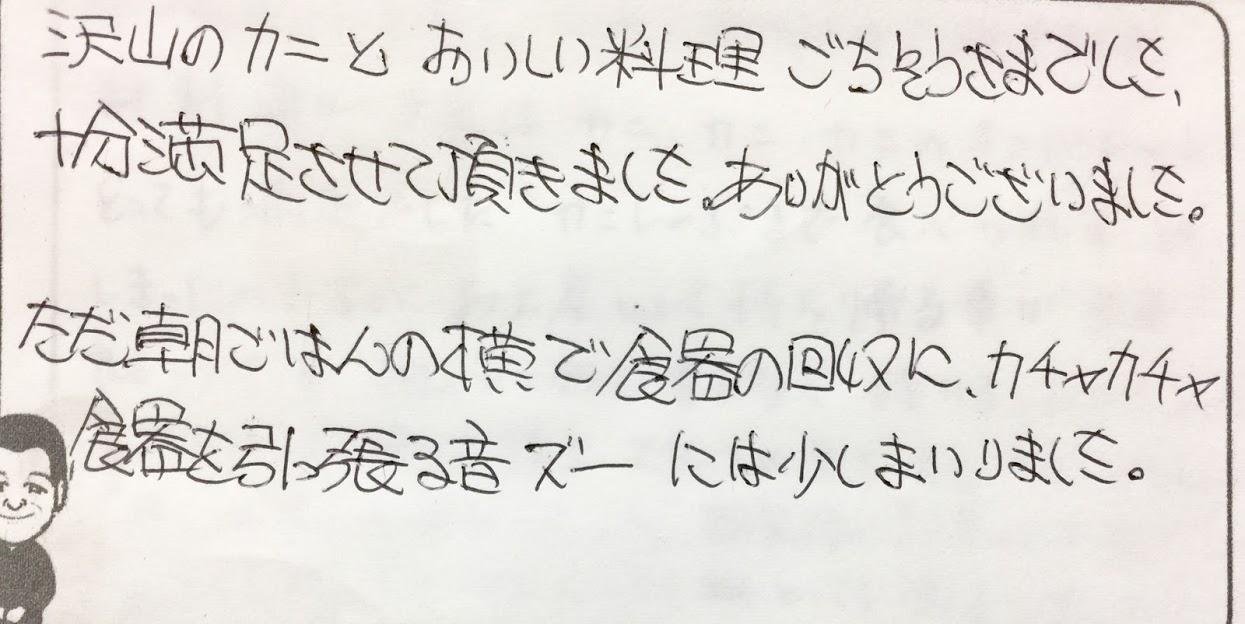 沢山のカニと おいしい料理 ごちそうさまでした、
十分満足させて頂きました。ありがとうございました。
ただ朝ごはんの横で食器の回収に、カチャカチャ
食器を引っ張る音ズー には少しまいりました。